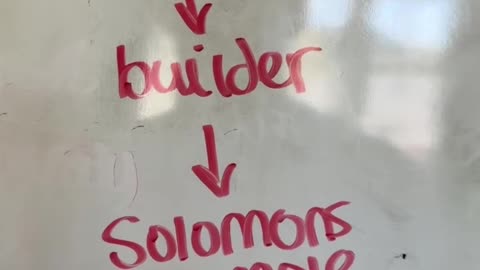 builder
Solomons